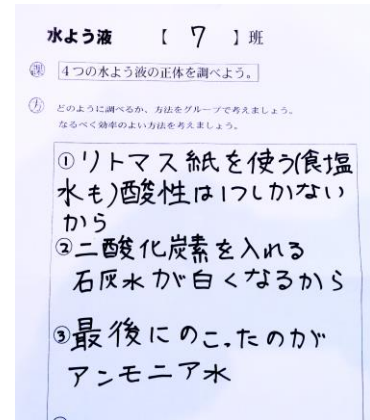 水よう液 【 7 】班
課 4つの水よう液の正体を調べよう。
方 どのように調べるか、方法をグループで考えましょう。
なるべく効率のよい方法を考えましょう。
①リトマス紙を使う(食塩
水も)酸性は1つしかない
から
②二酸化炭素を入れる
石灰水が白くなるから
③最後にのこったのが
アンモニア水